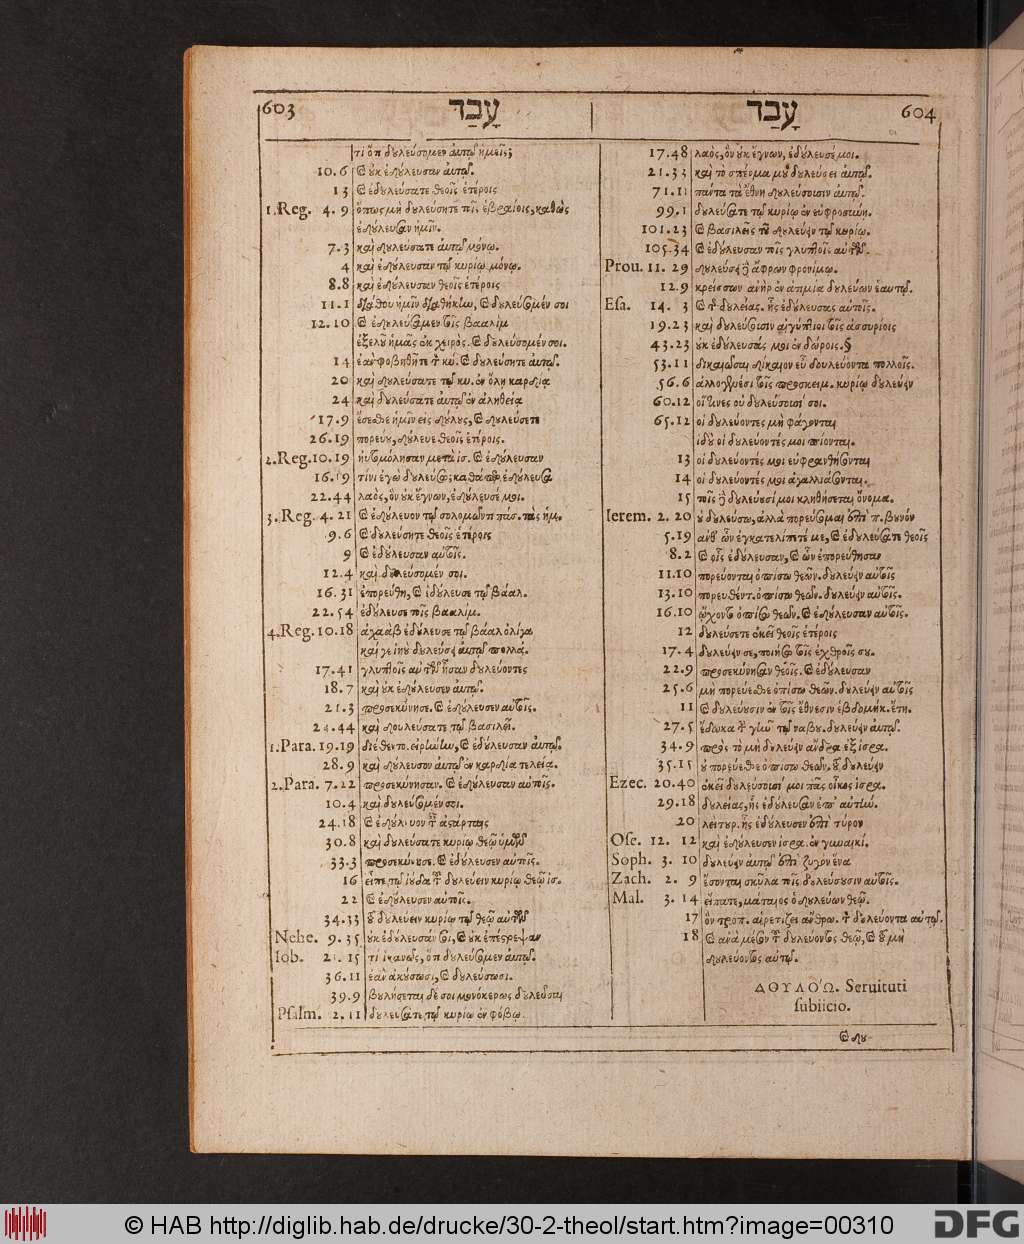 603 עָבַד עָבַד 604
τί ὅτι δουλεύσομεν αὐτῷ ἡμεῖς;
10.6 καὶ οὐκ ἐδούλευσαν αὐτῷ.
13 καὶ ἐδουλεύσατε θεοῖς ἑτέροις
1.Reg. 4.9 ὅπως μὴ δουλεύσητε τοῖς ἑβραίοις, καθὼς
ἐδούλευσαν ἡμῖν.
7.3 καὶ δουλεύσατε αὐτῷ μόνῳ.
4 καὶ ἐδούλευσαν τῷ κυρίῳ μόνῳ.
8.8 καὶ ἐδούλευσαν θεοῖς ἑτέροις
11.1 διάθου ἡμῖν διαθήκην, καὶ δουλεύσομέν σοι
12.10 καὶ ἐδουλεύσαμεν τοῖς βααλὶμ
ἐξελοῦ ἡμᾶς ἐκ χειρὸς. καὶ δουλεύσομέν σοι.
14 ἐὰν φοβηθῆτε τὸν κύ. καὶ δουλεύσητε αὐτῷ.
20 καὶ δουλεύσατε τῷ κυ. ἐν ὅλῃ καρδίᾳ
24 καὶ δουλεύσατε αὐτῷ ἐν ἀληθείᾳ
17.9 ἔσεσθε ἡμῖν εἰς δούλους, καὶ δουλεύσετε
26.19 πορεύου, δούλευε θεοῖς ἑτέροις.
2.Reg. 10.19 ηὐτομόλησαν μετὰ ἰσ. καὶ ἐδούλευσαν
16.19 τίνι ἐγὼ δουλεύσω; καθάπερ ἐδούλευσα
22.44 λαὸς, ὃν οὐκ ἔγνων, ἐδούλευσέ μοι.
3.Reg. 4.21 καὶ ἐδούλευον τῷ σολομὼν πάσ. τὰς ἡμ.
9.6 καὶ δουλεύσητε θεοῖς ἑτέροις
9 καὶ ἐδούλευσαν αὐτοῖς.
12.4 καὶ δουλεύσομέν σοι.
16.31 ἐπορεύθη, καὶ ἐδούλευσε τῷ βάαλ.
22.54 ἐδούλευσε τοῖς βααλίμ.
4.Reg. 10.18 ἀχαὰβ ἐδούλευσε τῷ βάαλ ὀλίγα
καί γε ἰηοὺ δουλεύσει αὐτῷ πολλά.
17.41 γλυπτοῖς αὐτῶν ἦσαν δουλεύοντες
18.7 καὶ οὐκ ἐδούλευσεν αὐτῷ.
21.3 προσεκύνησε. καὶ ἐδούλευσεν αὐτοῖς.
24 καὶ δουλεύσατε τῷ βασιλεῖ.
1.Para. 19.19 διέθεντο. εἰρήνην, καὶ ἐδούλευσαν αὐτῷ.
28.9 καὶ δούλευσον αὐτῷ ἐν καρδίᾳ τελείᾳ.
2.Para. 7.22 προσεκύνησαν. καὶ ἐδούλευσαν αὐτοῖς.
10.4 καὶ δουλεύσομέν σοι.
24.18 καὶ ἐδούλευον τῆς ἀστάρταις
30.8 καὶ δουλεύσατε κυρίῳ θεῷ ὑμῶν
33.3 προσεκύνησε. καὶ ἐδούλευσεν αὐτοῖς.
16 εἶπε τῷ ἰούδα τοῦ δουλεύειν κυρίῳ θεῷ ἰσ.
22 καὶ ἐδούλευσεν αὐτοῖς.
34.33 τοῦ δουλεύειν κυρίῳ τῷ θεῷ αὐτῶν
Nehe. 9.35 οὐκ ἐδούλευσάν σοι, καὶ οὐκ ἐπέστρεψαν
Iob. 21.15 τί ἱκανὸς, ὅτι δουλεύσομεν αὐτῷ.
36.11 ἐὰν ἀκούσωσι, καὶ δουλεύσωσι.
39.9 βουλήσεται δέ σοι μονόκερως δουλεῦσαι
Psalm. 2.11 δουλεύσατε τῷ κυρίῳ ἐν φόβῳ.
17.48 λαὸς, ὃν οὐκ ἔγνων, ἐδούλευσέ μοι.
21.33 καὶ τὸ σπέρμα μου δουλεύσει αὐτῷ.
71.11 πάντα τὰ ἔθνη δουλεύσουσιν αὐτῷ.
99.1 δουλεύσατε τῷ κυρίῳ ἐν εὐφροσύνῃ.
101.23 καὶ βασιλεῖς τοῦ δουλεύειν τῷ κυρίῳ.
105.34 καὶ ἐδούλευσαν τοῖς γλυπτοῖς αὐτῶν.
Prou. 11.29 δουλεύσει δὲ ἄφρων φρονίμῳ.
12.9 κρείσσων ἀνὴρ ἐν ἀτιμίᾳ δουλεύων ἑαυτῷ.
Esa. 14.3 καὶ τῆς δουλείας. ἧς ἐδούλευσας αὐτοῖς.
19.23 καὶ δουλεύσουσιν αἰγύπτιοι τοῖς ἀσσυρίοις
43.23 οὐκ ἐδούλευσάς μοι ἐν δώροις.§
53.11 δικαιῶσαι δίκαιον εὖ δουλεύοντα πολλοῖς.
56.6 ἀλλογενέσι τοῖς προσκειμ. κυρίῳ δουλεύειν
60.12 οἵτινες οὐ δουλεύσουσί σοι.
65.12 οἱ δουλεύοντες μὴ φάγονται
ἰδοὺ οἱ δουλεύοντές μοι πίονται.
13 οἱ δουλεύοντές μοι εὐφρανθήσονται
14 οἱ δουλεύοντές μοι ἀγαλλιάσονται.
15 τοῖς δὲ δουλεύουσί μοι κληθήσεται ὄνομα.
Ierem. 2.20 οὐ δουλεύσω, ἀλλὰ πορεύσομαι ἐπὶ π. βουνόν
5.19 ἀνθ’ ὧν ἐγκατελίπετέ με, καὶ ἐδουλεύσατε θεοῖς
8.2 καὶ οἷς ἐδούλευσαν, καὶ ὧν ἐπορεύθησαν
11.10 πορεύονται ὀπίσω θεῶν. δουλεύειν αὐτοῖς
13.10 πορευθέντ. ὀπίσω θεῶν. δουλεύειν αὐτοῖς.
16.10 ᾤχοντο ὀπίσω θεῶν. καὶ ἐδούλευσαν αὐτοῖς.
12 δουλεύσετε ἐκεῖ θεοῖς ἑτέροις
17.4 δουλεύειν σε, ποιήσω τοῖς ἐχθροῖς σου.
22.9 προσεκύνησαν θεοῖς. καὶ ἐδούλευσαν
25.6 μὴ πορεύεσθε ὀπίσω θεῶν. δουλεύειν αὐτοῖς
11 καὶ δουλεύσουσιν ἐν τοῖς ἔθνεσιν ἑβδομήκ. ἔτη.
27.5 ἔδωκα τὴν γῆν τῷ ναβου. δουλεύειν αὐτῷ.
34.9 πρὸς τὸ μὴ δουλεύειν ἄνδρα ἐξ ἰσρα.
35.15 οὐ πορεύεσθε ὀπίσω θεῶν. τοῦ δουλεύειν
Ezec. 20.40 ἐκεῖ δουλεύσουσί μοι πᾶς οἶκος ἰσρα.
29.18 δουλείας, ἧς ἐδούλευσαν ἐπ’ αὐτήν.
20 λειτουρ. ἧς ἐδούλευσεν ἐπὶ τύρον
Ose. 12.12 καὶ ἐδούλευσεν ἰσρα. ἐν γυναικί.
Soph. 3.10 δουλεύειν αὐτῷ ὑπὸ ζυγὸν ἕνα
Zach. 2.9 ἔσονται σκῦλα τοῖς δουλεύουσιν αὐτοῖς.
Mal. 3.14 εἴπατε, μάταιος ὁ δουλεύων θεῷ.
17 ὃν τροπ. αἱρετίζει ἄνθρω. τὸν δουλεύοντα αὐτῷ.
18 καὶ ἀνὰ μέσον τοῦ δουλεύοντος θεῷ, καὶ τοῦ μὴ
δουλεύοντος αὐτῷ.
ΔΟΥΛΟΏ. Seruituti
subiicio.
καὶ δου-
© HAB http://diglib.hab.de/drucke/30-2-theol/start.htm?image=00310
DFG